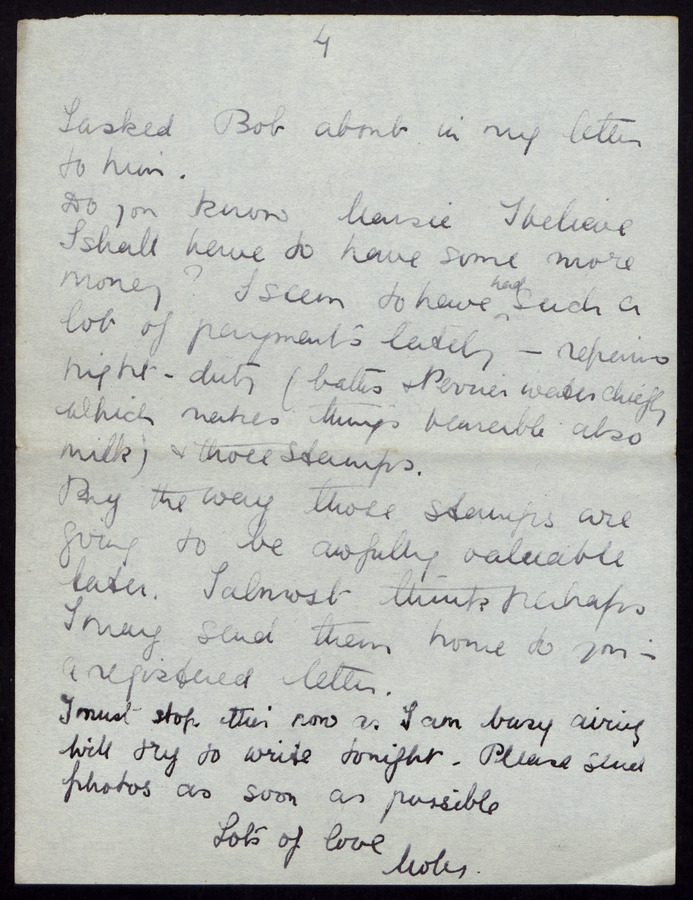 4
I asked Bob about in my letter
to him.
Do you know Mausie I believe
I shall have to have some more
money? I seem to have had such a
lot of payments lately — repairs
night-duty ( & Perrier water chiefly
which makes things bearable also
milk) & those stamps.
By the way those stamps are
going to be awfully valuable
later. I almost think perhaps
I may send them home to you in
a registered letter.
I must stop this now as I am busy airing
will try to write tonight. Please send
photos as soon as possible
Lots of love